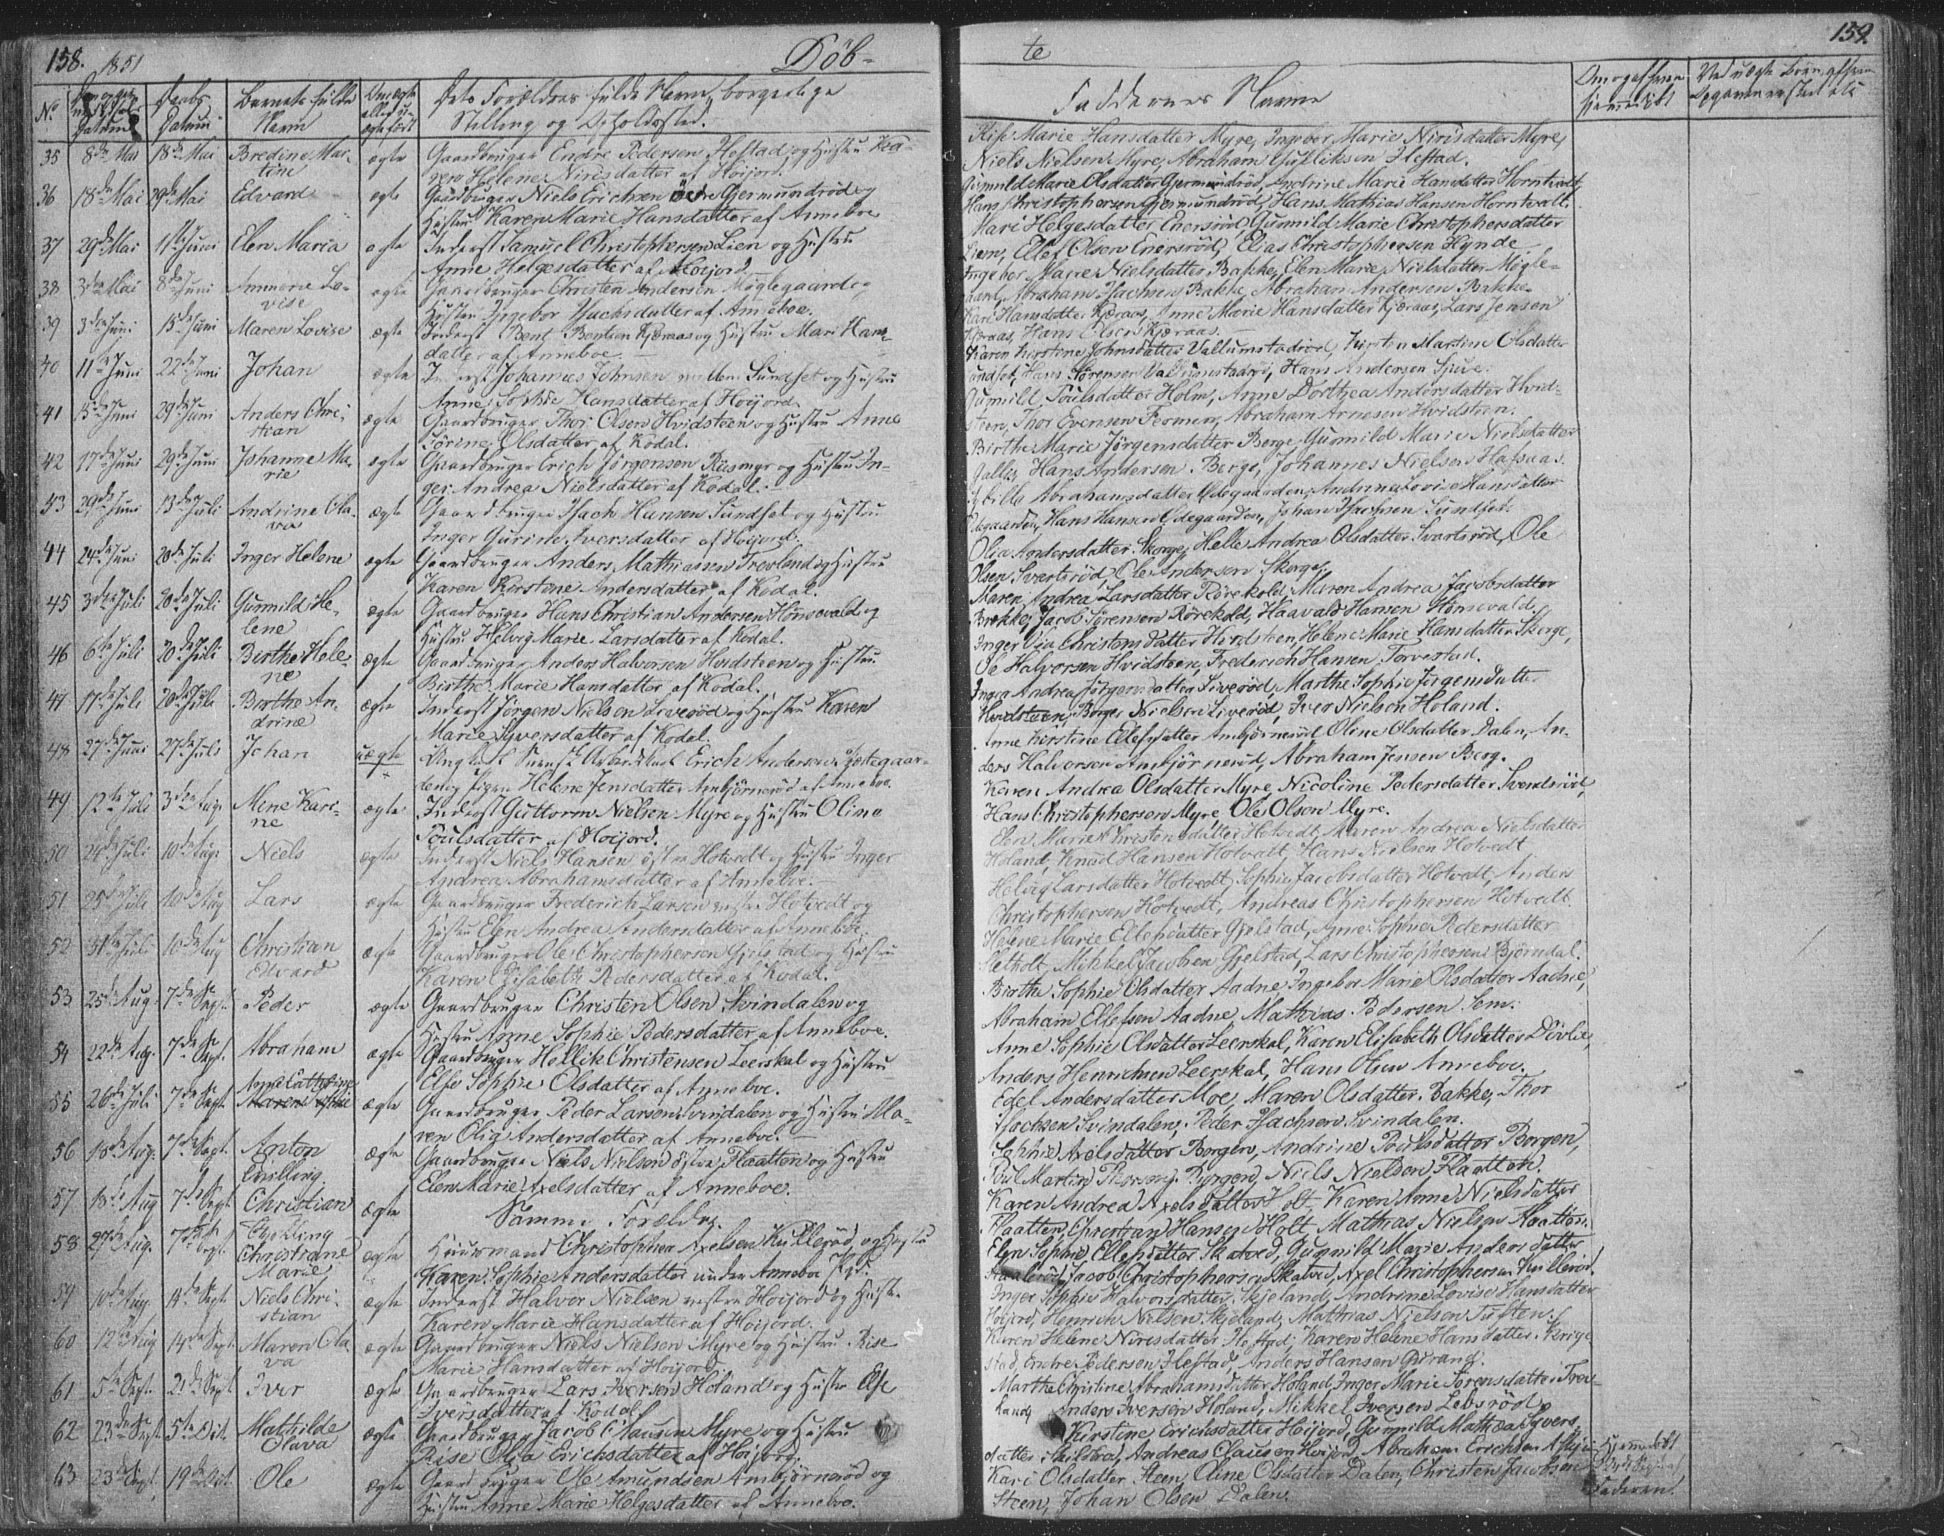 158. 1851 Döb-
No Datum Daabs Datum Barnets fulde Navn Om ægte eller uægte født Dets Forældres fulde Navn, borgerlige Stilling og Opholdssted.
35 8de Mai 18de Mai Bredine Mar- ægte Gaardbruger Endre Pedersen Hestad og Hustru Ka-
tine ren Helene Nirisdatter af Höijord.
36 18de Mai 29de Mai Edvard ægte Gaardbruger Niels Erichsen övre Gjermundröd og
Hustru Karen Marie Hansdatter af Anneboe
37 29de Mai 11te Juni Elen Maria ægte Inderst Samuel Christophersen Lien og Hustru
Anne Helgesdatter af Höijord
38 3die Mai 8de Juni Annmarie Lo- ægte Gaardbruger Christen Andersen Möglegaard og
vise Hustru Ingebor Isachsdatter af Anneboe.
39 3die Juni 15de Juni Maren Lovise ægte Inderst Bent Bentsen Kjæraas og Hustru Mari Hans-
datter af Anneboe. —
40 11te Juni 22de Juni Johan ægte Inderst Johannes Johnsen mellem Sundset og Hustru
Anne Sophie Hansdatter af Höijord.
41 15de Juni 29de Juni Anders Chri- ægte Gaardbruger Thor Olsen Hvidsteen og Hustru Anne
stian Sörine Olsdatter af Kodal.
42 17de Juni 29de Juni Johanne Ma- ægte Gaardbruger Erich Jørgensen Ruemyr og Hustru In-
rie ger Andrea Nielsdatter af Kodal.
43 29de Juni 13de Juli Andrine Ola- ægte Gaardbruger Isach Hansen Sundset og Hustru
va Inger Gurine Iversdatter af Höijord.
44 24de Juni 20de Juli Inger Helene ægte Gaardbruger Anders Mathiasen Trevland og Hustru
Karen Kirstine Andersdatter af Kodal.
45 3die Juli 20de Juli Gunnild He- ægte Gaardbruger Hans Christian Andersen Hönsvald og
lene Hustru Helvig Marie Larsdatter af Kodal.
46 6te Juli 20de Juli Birthe Hele- ægte Gaardbruger Anders Halvorsen Hvidsteen og Hustru
ne Birthe Marie Hansdatter af Kodal.
47 17de Juli 20de Juli Birthe An- ægte Inderst Jørgen Nielsen Liveröd og Hustru Karen
drine Marie Syversdatter af Kodal.
48 27de Juni 27de Juli Johan uægte Ungkarl Erich Andersen Ødegaar-
den og Pigen Helene Jensdatter Ambjörneröd af Anneboe.
49 12te Juli 3die Aug. Mene Kari- ægte Inderst Guttorm Nielsen Myre og Hustru Oline
ne Poulsdatter af Höijord.
50 24de Juli 10de Aug. Niels ægte Inderst Niels Hansen östre Hotvedt og Hustru Inger
Andrea Abrahamsdatter af Anneboe. —
51 25de Juli 10de Aug Lars ægte Gaardbruger Frederich Larsen vestre Hotvedt og
Hustru Elen Andrea Andersdatter af Anneboe.
52 31te Juli 10de Aug Christian ægte Gaardbruger Ole Christophersen Gjelstad og Hustru
Edvard Karen Elisabeth Pedersdatter af Kodal.
53 25de Aug. 7de Sept. Peder ægte Gaardbruger Christen Olsen Svindalen og
Hustru Anne Sophie Pedersdatter af Anneboe.
54 22de Aug. 7de Sept. Abraham ægte Gaardbruger Hellik Christensen Leerskal og Hustru
Else Sophie Olsdatter af Anneboe.
55 26de Juli 7de Sept. Anne Cathrine Maren Sophie ægte Gaardbruger Peder Larsen Svindalen og Hustru Ma-
ren Olia Andersdatter af Anneboe. —
56 18de Aug. 7de Sept. Anton ægte Gaardbruger Niels Nielsen östre Flaatten og Hustru
Tvilling Elen Marie Axelsdatter af Anneboe.
57 18de Aug 7de Sept. Christian ægte Samme Forældre.
Tvilling
58 27de Aug. 7de Sept. Christiane ægte Huusmand Christopher Axelsen Kulleröd og Hustru
Marie Karen Sophie Andersdatter under Anneboe
59 10de Aug 14de Sept. Niels Chri- ægte Inderst Halvor Nielsen vestre Höijord og Hustru
stian Karen Marie Hansdatter af Höijord.
60 12te Aug 14de Sept. Maren Ola- ægte Gaardbruger Niels Nielsen Myre og Hustru Rise
va Marie Hansdatter af Höijord.
61 5te Sept. 21de Sept. Iver ægte Gaardbruger Lars Iversen Holand og Hustru Else
Iversdatter af Kodal
62 23de Sept. 5te Oct. Mathilde ægte Gaardbruger Jacob Clausen Myre og Hustru
Olava Rise Olia Erichsdatter af Höijord.
63 23de Sept. 19de Oct. Ole ægte Gaardbruger Ole Amundsen Ambjörneröd og
Hustru Anne Marie Helgesdatter af Anneboe.
te 159.
Faddernes Navne Om og af hvem hjemmedöbt
Rise Marie Hansdatter Myre, Ingebor Marie Nirisdatter Myre,
Niels Nielsen Myre, Abraham Gulliksen Hestad.
Gunnild Marie Olsdatter Gjermundröd, Andrine Marie Hansdatter Horntvedt,
Hans Christophersen Gjermundröd, Hans Mathias Hansen Horntvedt.
Mari Helgesdatter Eneröd, Gunnild Marie Christophersdatter
Lien, Ellef Olsen Eneröd, Elias Christophersen Hynde
Ingebor Marie Nielsdatter Bakke, Elen Marie Nielsdatter Mögle-
gaard, Abraham Isachsen Bakke, Abraham Andersen Bakke.
Kari Hansdatter Kjæraas, Anne Marie Hansdatter Kjæraas, Lars Jensen
Kjæraas, Hans Olsen Kjæraas. —
Karen Kirstine Johnsdatter Vallumstadröd, Kirsten Martine Olsdatter
Sundset, Hans Sörensen Vallumstadröd, Hans Andersen
Gunnild Poulsdatter Holm, Anne Dorthea Andersdatter Hvid-
steen, Thor Evensen Feomen, Abraham Arnesen Hvidsteen.
Birthe Marie Jörgensdatter Berge, Gunnild Marie Nielsdatter
Hans Andersen Berge, Johannes Nielsen
Abrahamsdatter Ødegaarden, Andrine Lovise Hansdatter
Ødegaarden, Hans Hansen Ødegaarden, Johan Isachsen Sundset.
Olia Andersdatter Skorge, Helle Andrea Olsdatter Svarteröd, Ole
Olsen Svarteröd, Ole Andersen Skorge.
Maren Andrea Larsdatter Rörekold, Maren Andrea Jacobsdatter
Brekke, Jacob Sörensen Rörekold, Haavald Hansen Hönsvald.
Inger Olia Christensdatter Hvidsteen, Helene Marie Hansdatter Skorge,
Ole Halvorsen Hvidsteen, Frederich Hansen Torvestad.
Inger Andrea Jörgensdatter Liveröd, Marthe Sophie Jörgensdatter
Hvidsteen, Borger Nielsen Liveröd, Iver Nielsen Holand.
Anne Kirstine Ellefsdatter Ambjörneröd, Oline Olsdatter Dalen, An-
ders Halvorsen Ambjörneröd, Abraham Jensen Berg.
Karen Andrea Olsdatter Myre, Nicoline Pedersdatter Svenderöd,
Hans Christophersen Myre, Ole Olsen Myre.
Elen Marie Christensdatter Hotvedt, Maren Andrea Nielsdatter
Holand, Knud Hansen Hotvedt, Hans Nielsen Hotvedt
Helvig Larsdatter Hotvedt, Sophie Jacobsdatter Hotvedt, Anders
Christophersen Hotvedt, Andreas Christophersen Hotvedt.
Helene Marie Ellefsdatter Gjelstad, Anne Sophie Pedersdatter
Sletholt, Mikkel Jacobsen Gjelstad, Lars Christophersen Björndal.
Birthe Sophie Olsdatter Aadne, Ingebor Marie Olsdatter Aadne,
Abraham Ellefsen Aadne, Mathias Pedersen Sem.
Anne Sophie Olsdatter Leerskal, Karen Elisabeth Olsdatter Dövle,
Anders Henrichsen Leerskal, Hans Olsen Anneboe.
Edel Andersdatter Moe, Maren Olsdatter Bakke, Thor
Isachsen Svindalen, Peder Isachsen Svindalen.
Sophie Axelsdatter Borgen, Andrine Poulsdatter Borgen,
Poul Martin Thorsen Borgen, Niels Nielsen Flaatten.
Karen Andrea Axelsdatter Holt, Karen Anne Nielsdatter
Flaatten, Christian Hansen Holt, Mathias Nielsen Flaatten.
Elen Sophie Ellefsdatter Skatved, Gunnild Marie Andersdatter
Jacob Christophersen Skatved, Axel Christophersen Kulleröd.
Inger Sophie Halvorsdatter Skjeland, Andrine Lovise Hansdatter
Höijord, Henrich Nielsen Skjeland, Mathias Nielsen Tuften.
Karen Helene Nirisdatter Hestad, Karen Helene Hansdatter
stad, Endre Pedersen Hestad, Anders Hansen
Marthe Christine Abrahamsdatter Holand, Inger Marie Sörensdatter Trev-
land, Anders Iversen Holand, Mikkel Iversen Lebsröd.
Kirstine Erichsdatter Höijord, Gunnild Mathea Syvers-
datter Andreas Clausen Höijord, Abraham Erichsen Hjemmedöbt
Kari Olsdatter Steen, Oline Olsdatter Dalen, Christen Jacobsen
Steen, Johan Olsen Dalen. Faderen.